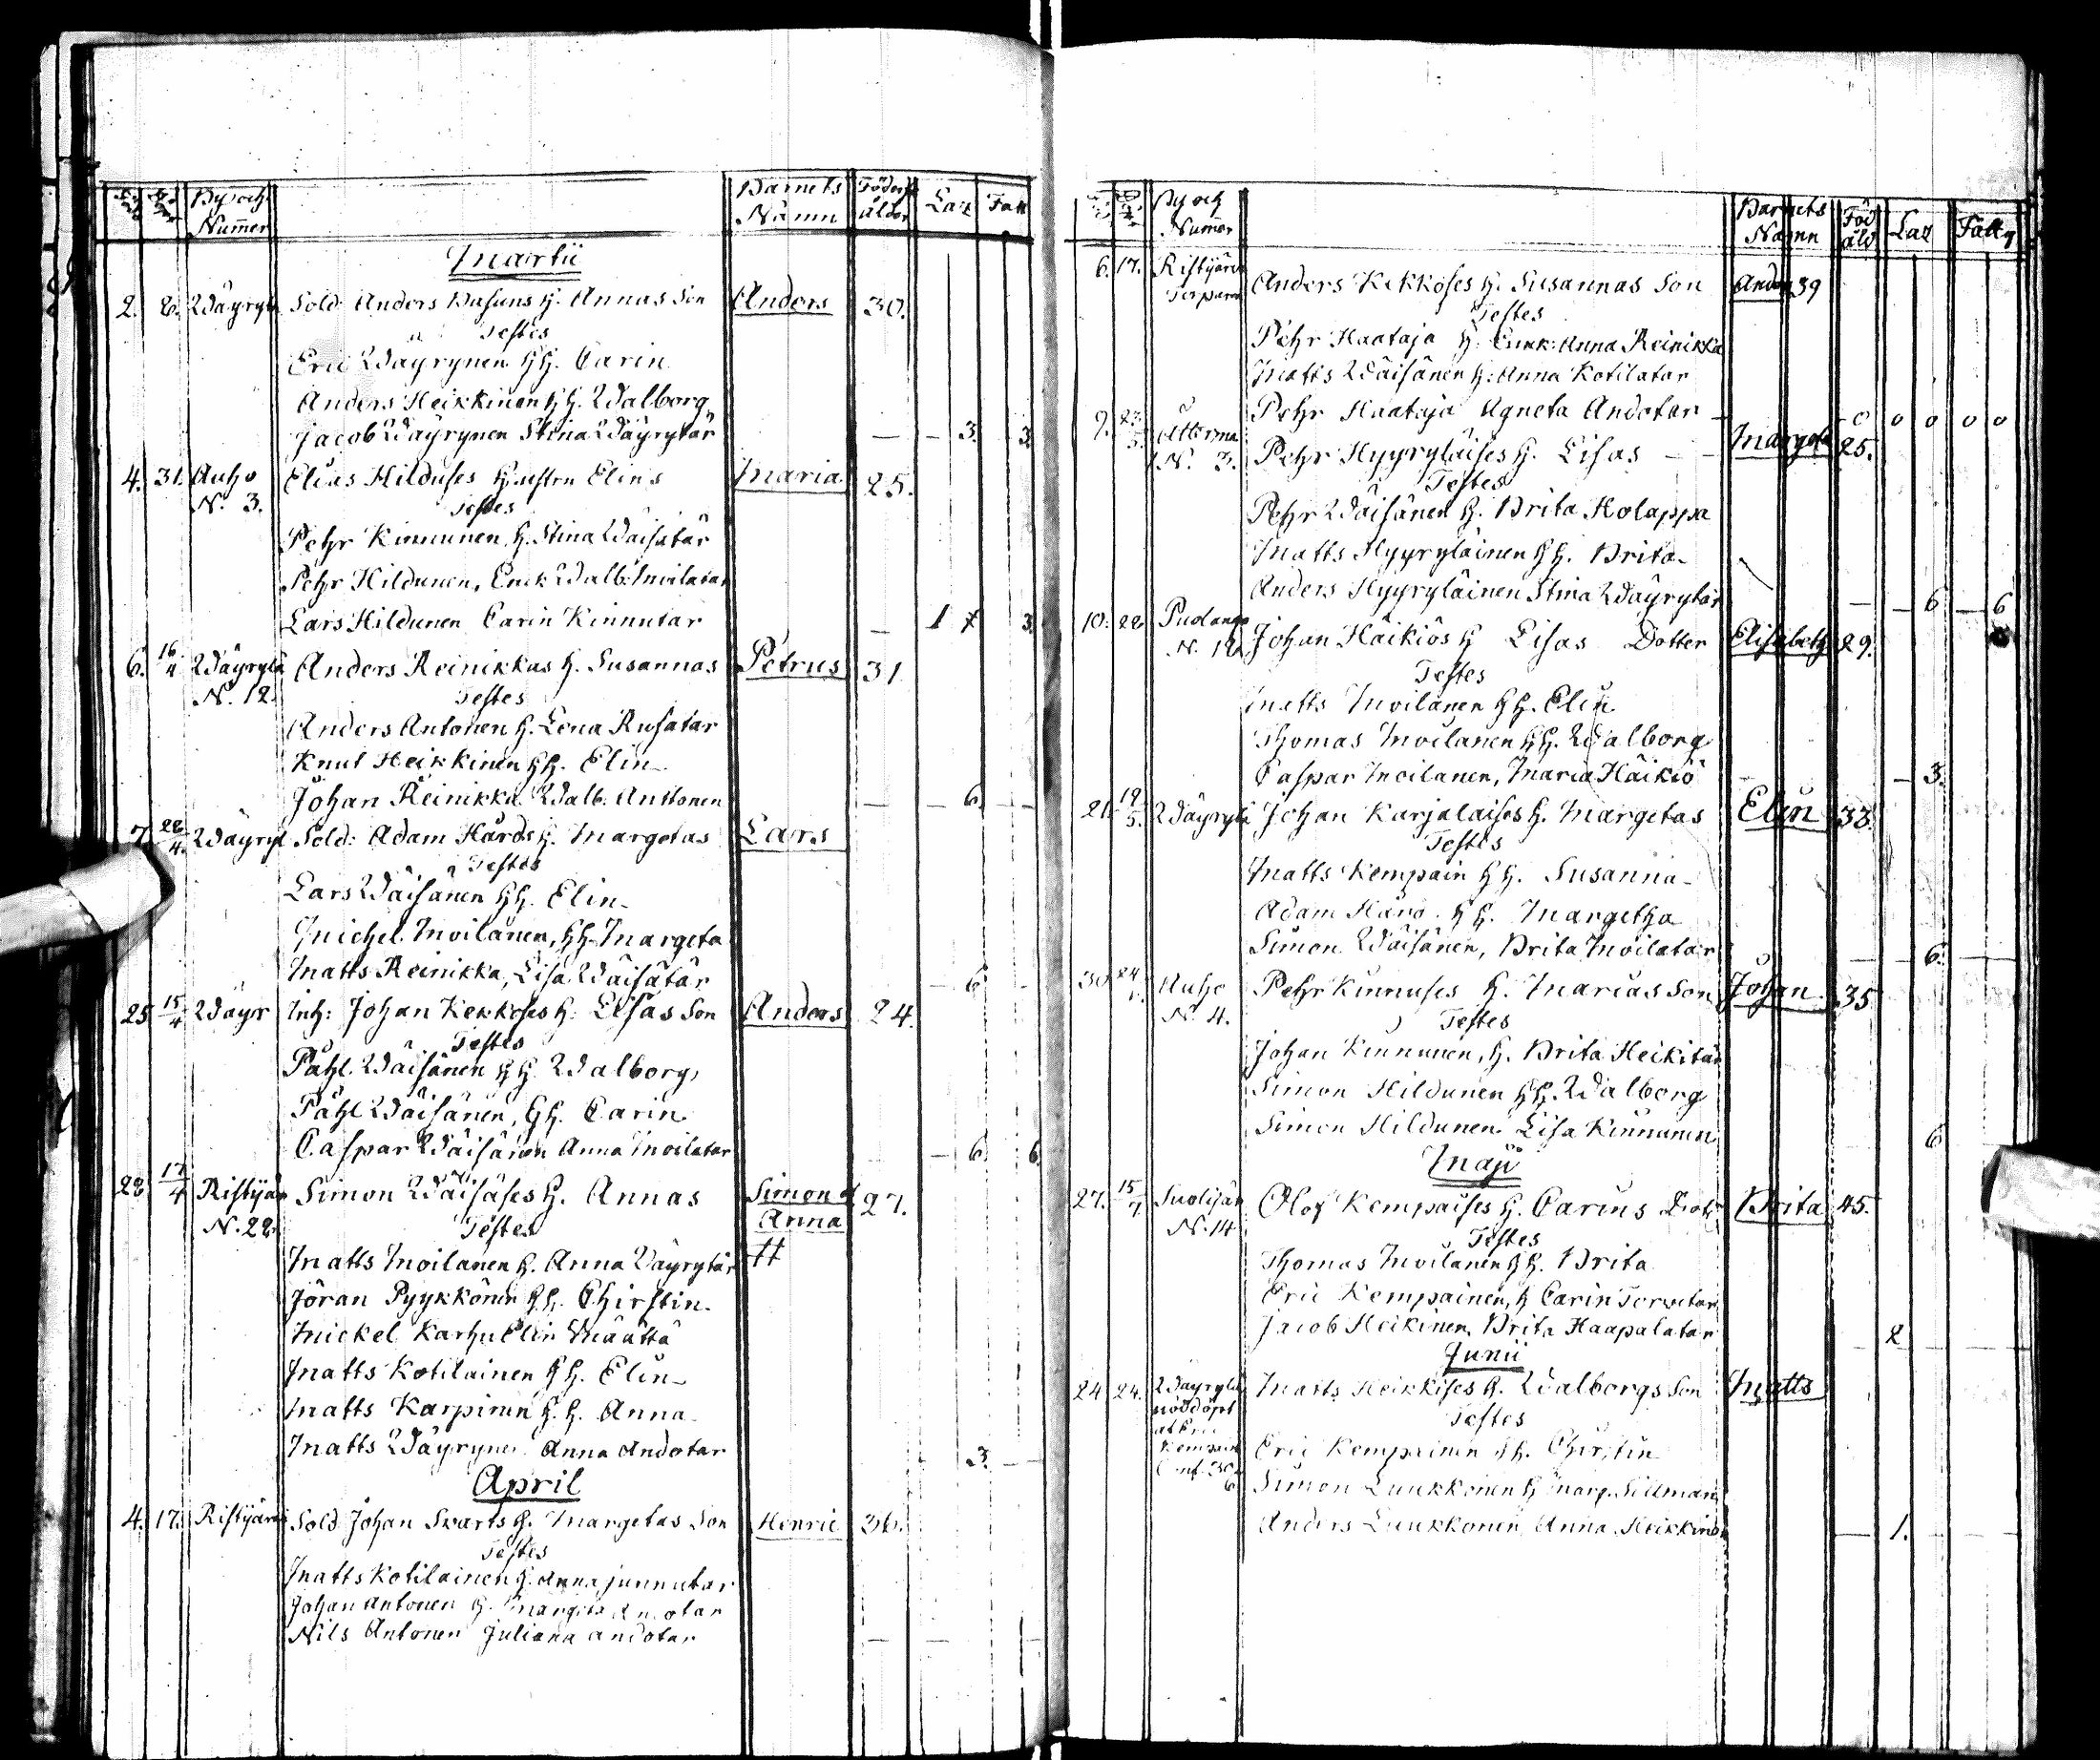 By och Numer
Barnets Namn
Föders ålder
Laz
Fatt
Martii
2. 8. Wäyryl Sold: Anders Basuns H. Annas Son Anders 30.
Testes
Eric Wäyrynen HH. Carin
Anders Heikkinen HH. Walborg
Jacob Wäyrynen Stina Wäyrytär 3. 3.
4. 31. Auho N. 3. Elias Hilduses Hustru Elins Maria 25.
Testes
Pehr Kinnunen H. Stina Wäisätär
Pehr Hildunen, Enck Walb: Moilatar
Lars Hildunen Carin Kinnutar 3
6. 16/4 Wäyrylä N. 12. Anders Reinikkas H. Susannas Petrus 31
Testes
Anders Antonen H. Lena Rusatar
Knut Heikkinen HH. Elin
Johan Reinikka Walb. Anttonen 6
7. 28/4. Wäyryl Sold: Adam Hårds H. Margetas Lars
Testes
Lars Wäisänen HH. Elin
Michel Moilanen, HH. Margeta
Matts Reinikka, Lisa Wäisätär 6
25 15/4 Wäyr Inh: Johan Kekkoses H: Lisas Son Anders 24.
Testes
Påhl Wäisänen HH. Walborg
Påhl Wäisänen, HH. Carin
Caspar Wäisänen Anna Moilatar 6. 6.
28 17/4 Ristijär N. 22 Simon Wäisäses H. Annas Simon & Anna 27.
Testes
Matts Moilanen H. Anna Wäyrytär
Jöran Pyykkönen HH. Chirstin
Mickel Karhu Elin Määttä
Matts Kotilainen HH. Elin
Matts Karpinen H.H. Anna
Matts Wäyrynen Anna Andotar 3.
April
4. 17. Ristijärvi Sold Johan Svarts H. Margetas Son Henric 36.
Testes
Matts Kotilainen H. Anna Junnutar
Johan Antonen H. Margeta Andotar
Nils Antonen Juliana andotar
By och Numer
Barnets Namn
Föd åld
Laz
Fattg
6. 17. Ristijärvi Torpare Anders Kekkoses H. Susannas Son Anders 39
Testes
Pehr Haataja H. Enck: Anna Reinikka
Matts Wäisänen H: Anna Kotilatar
Pehr Haataja Agneta Andotar 0 0 0 0 0
9. 23/5 N. 3. Pehr Hyyryläises H. Lisas Margeta 25.
Testes
Pehr Wäisänen H. Brita Holappa
Matts Hyyryläinen HH. Brita
Anders Hyyryläinen Stina Wäyrytär 6 6
10. 28 Pudango N. 12 Johan Häikiös H Lisas Dotter Elisabeth 29.
Testes
Matts Moilanen HH. Elin
Thomas Moilanen HH. Walborg
Caspar Moilanen, Maria Häikiö 3.
21. 19/5. Wäyrylä Johan Karjalaises H. Margetas Elin 33.
Testes
Matts Kempain HH. Susanna
Adam Hård HH. Margetha
Simon Wäisänen, Brita Moilatar 6.
30 24 Auho N. 4. Pehr Kinnuses H. Marias Son Johan 35
Testes
Johan Kinnunen, H. Brita Heikitär
Simon Hildunen HH. Walborg
Simon Hildunen Lisa Kinnunen 6
Maji
27. 15/7 Suolijär N. 14 Olof Kempaises H. Carins Dotr Brita 45.
Testes
Thomas Moilanen HH. Brita
Eric Kempainen, H Carin Torvitar
Jacob Heikinen, Brita Haapalatar 2
Junii
24 24. Wäyrylä nöddöpt af Eric Kempain Matts Heikkises H. Walborgs Son Matts
Testes
Eric Kempainen HH. Chirstin
Simon Luukkonen H Marg. Sillman
Anders Luukkonen Anna Heikkinen 1.